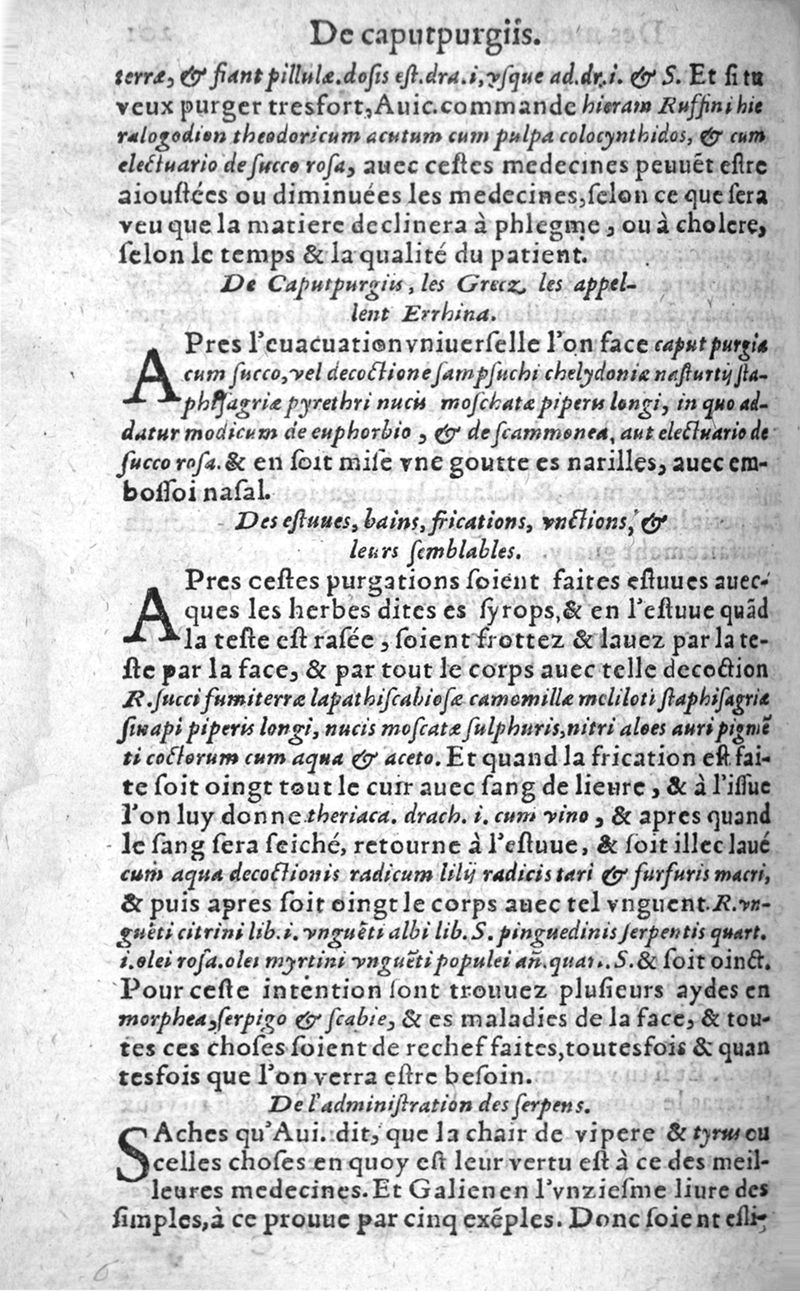 De caputpurgiis.
terræ, & fiant pillulæ. dosis est. dra. i, vsque ad. dr. i. & S. Et si tu
veux purger tresfort, Auic. commande hieram Ruffini hie
ralogodion theodoricum acutum cum pulpa colocynthidos, & cum
electuario de succo rosa, auec cestes medecines peuuẽt estre
aioustées ou diminuées les medecines, selon ce que sera
veu que la matiere declinera à phlegme, ou à cholere,
selon le temps & la qualité du patient.
De Caputpurgiis, les Grecz les appel-
lent Errhina.
APres l'euacuation vniuerselle l'on face caputpurgia
cum succo, vel decoctione sampsuchi chelydoniæ nasturtij sta-
phisagriæ pyrethri nucis moschatæ piperis longi, in quo ad-
datur modicum de euphorbio, & de scammonea, aut electuario de
succo rosa. & en soit mise vne goutte es narilles, auec em-
bossoi nasal.
Des estuues, bains, frications, vnctions, &
leurs semblables.
APres cestes purgations soient faites estuues auec-
ques les herbes dites es syrops, & en l'estuue quãd
la teste est rasée, soient frottez & lauez par la te-
ste par la face, & par tout le corps auec telle decoction
R. succi fumiterræ lapathi scabiosæ camomillæ meliloti staphisagriæ
sinapi piperis longi, nucis moscatæ sulphuris, nitri aloes auripigmẽ
ti coctorum cum aqua & aceto. Et quand la frication est fai-
te soit oingt tout le cuir auec sang de lieure, & à l'issue
l'on luy donne theriaca. drach. i. cum vino, & apres quand
le sang sera seiché, retourne à l'estuue, & soit illec laué
cum aqua decoctionis radicum lilij radicis tari & furfuris macri,
& puis apres soit oingt le corps auec tel vnguent. R. vn-
guẽti citrini lib. i. vnguẽti albi lib. S. pinguedinis serpentis quart.
i. olei rosa. olei myrtini vnguẽti populei añ. quar. S. & soit oinct.
Pour ceste intention sont trouuez plusieurs aydes en
morphea, serpigo & scabie, & es maladies de la face, & tou-
tes ces choses soient de rechef faites, toutesfois & quan
tesfois que l'on verra estre besoin.
De l'administration des serpens.
SAches qu'Aui. dit, que la chair de vipere & tyrus ou
celles choses en quoy est leur vertu est à ce des meil-
leures medecines. Et Galien en l'vnziesme liure des
simples, à ce prouue par cinq exẽples. Donc soient esli-